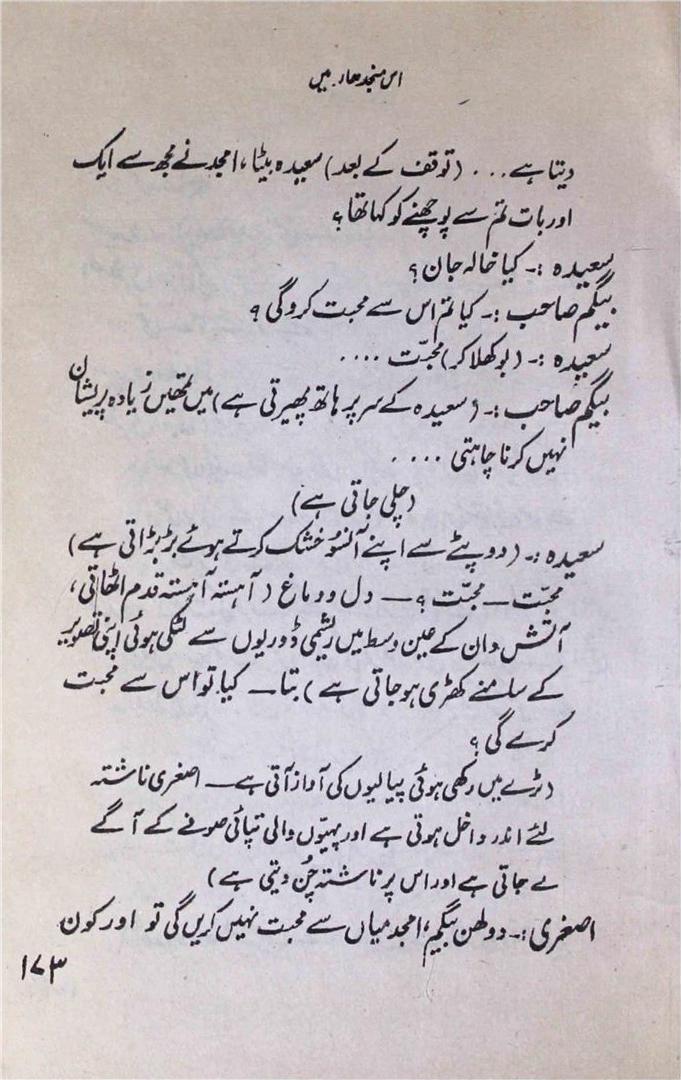 اس منجدھار میں
دیتا ہے ... (توقف کے بعد) سعیدہ بیٹا، امجد نے مجھ سے ایک
اور بات تم سے پوچھنے کو کہا تھا؟
سعیدہ :۔ کیا خالہ جان؟
بیگم صاحب :۔ کیا تم اس سے محبت کرو گی؟
سعیدہ :۔ (بوکھلا کر) محبّت ....
بیگم صاحب :۔ (سعیدہ کے سر پر ہاتھ پھیرتی ہے) میں تمھیں زیادہ پریشان
نہیں کرنا چاہتی ....
(چلی جاتی ہے)
سعیدہ :۔ (دوپٹے سے اپنے آنسوُ خشک کرتے ہوئے بڑبڑاتی ہے)
محبّت ۔ محبّت ؟ ۔ دل و دماغ (آہستہ آہستہ قدم اٹھاتی،
آتش دان کے عین وسط میں ریشمی ڈوریوں سے لٹکی ہوئی اپنی تصویر
کے سامنے کھڑی ہو جاتی ہے) بتا ۔ کیا تو اس سے محبت
کرے گی؟
(ٹرے میں رکھی ہوئی پیالیوں کی آواز آتی ہے ۔ اصغری ناشتہ
لئے اندر داخل ہوتی ہے اور پہیّوں والی تپائی صوفے کے آگے
لے جاتی ہے اور اس پر ناشتہ چُن دیتی ہے)
اصغری :۔ دولھن بیگم، امجد میاں سے محبت نہیں کریں گی تو اور کون
۱۷۳